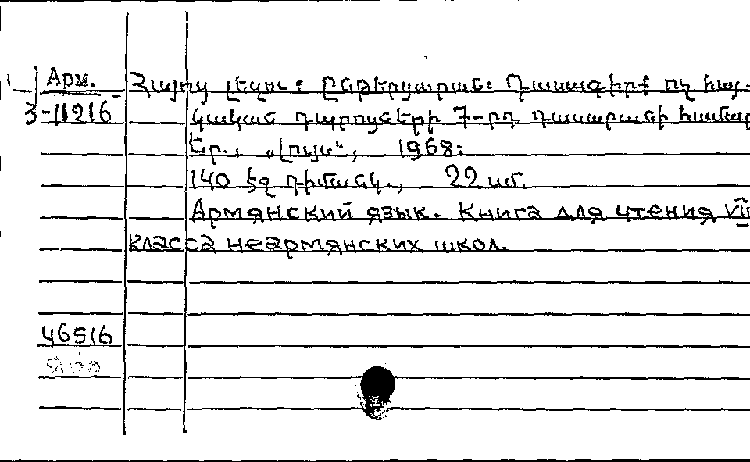 Арм. Հայոց լեզու: Ընթերցարան: Դասագիրք ոչ հայ-
3-11216 կական դպրոցների 7-րդ դասարանի համար
Եր., „Լույս“, 1968:
140 էջ դիմանկ., 22 սմ.
Армянский язык. Книга для чтения VII
класса неармянских школ.
46516